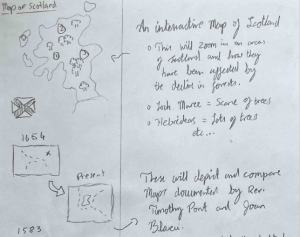 Map of Scotland
An interactive Map of Scotland
o This will zoom in on areas
of Scotland and how they
have been affected by
the decline in forests.
o Loch Maree = Scarce of trees
o Hebrideas = Lots of trees
etc...
1654
Present
1583
These will depict and compare
Maps documented by Rev.
Timothy Pont and Joan
Blaeu.